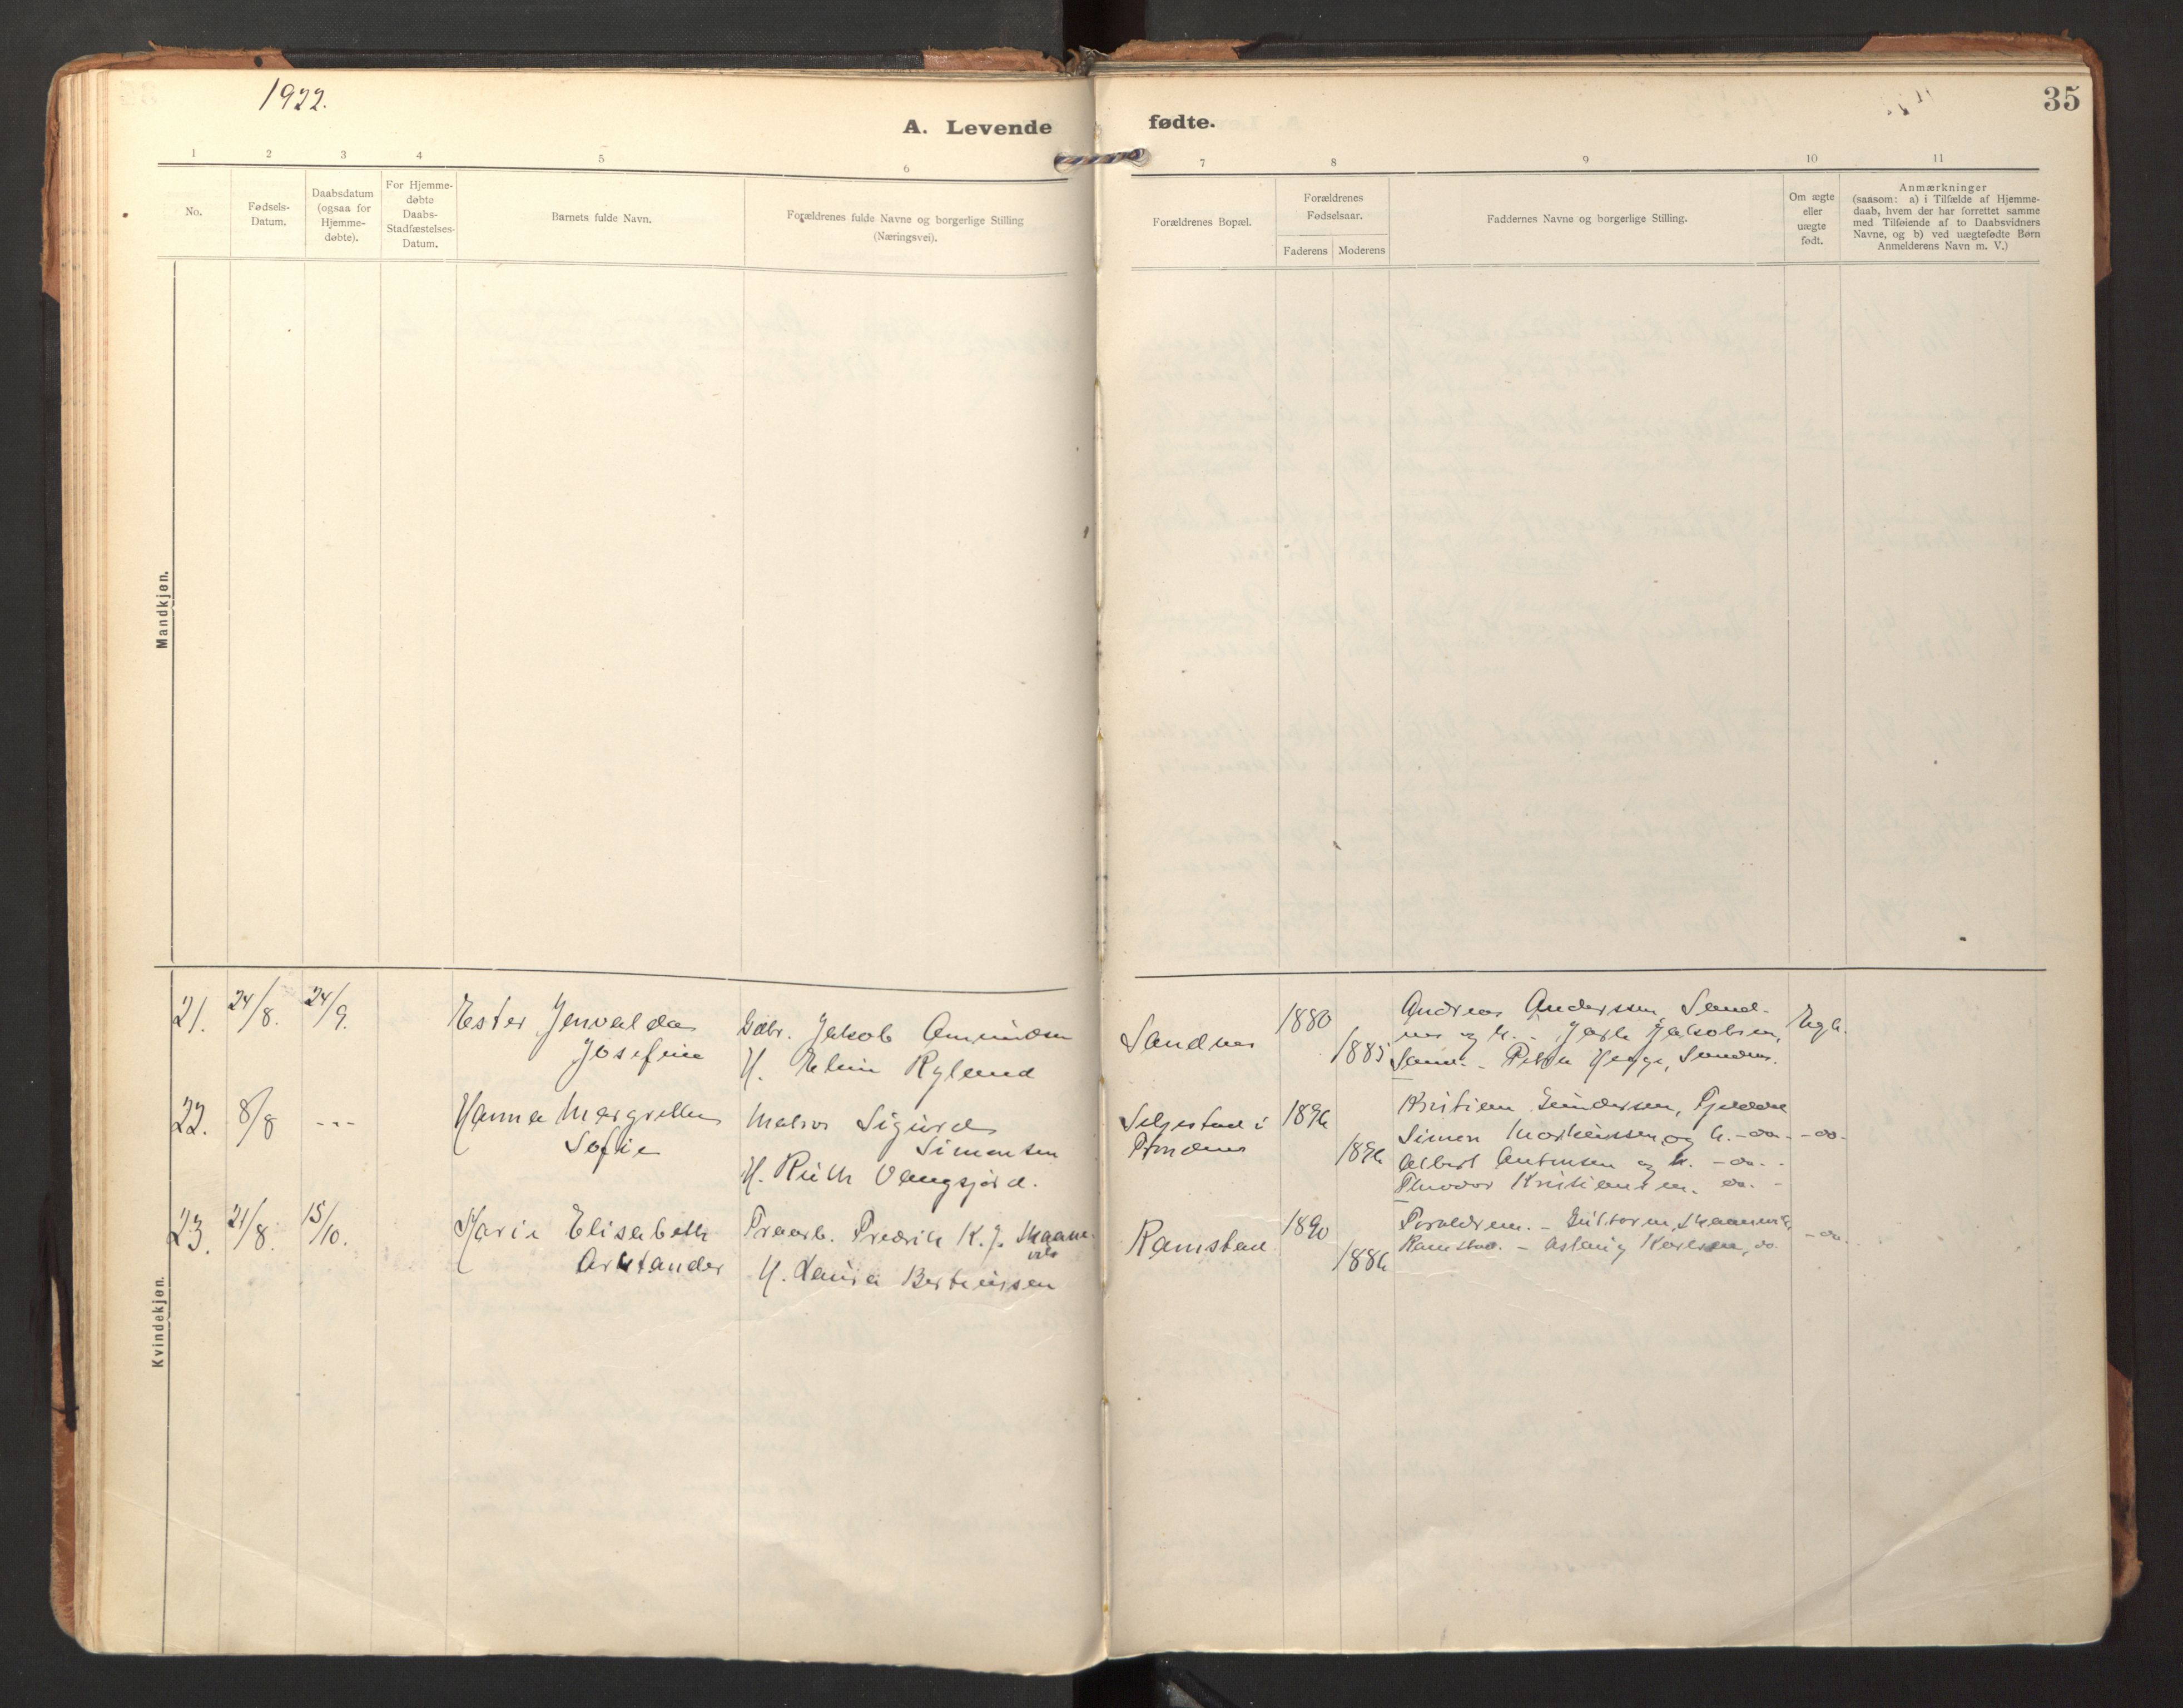 1922.
35
A. Levende fødte.
1 2 3 4 5 6 7 8 9 10 11
No.
Fødsels-
Datum.
Daabsdatum
(ogsaa for
Hjemme-
døbte).
For Hjemme-
døbte
Daabs-
Stadfæstelses-
Datum.
Barnets fulde Navn.
Forældrenes fulde Navne og borgerlige Stilling
(Næringsvei).
Forældrenes Bopæl.
Forældrenes
Fødselsaar.
Faderens Moderens
Faddernes Navne og borgerlige Stilling.
Om ægte
eller
uægte
født.
Anmærkninger
(saasom: a) i Tilfælde af Hjemme-
daab, hvem der har forrettet samme
med Tilføiende af to Daabsvidners
Navne, og b) ved uægtefødte Børn
Anmelderens Navn m. V.)
Mandkjøn.
Kvindekjøn.
21. 24/8. 24/9.
Ester Jenvalda
Josefine
Gdbr. Jakob Amundsen
H. Elin Ryland
Sandnes
1880
1885
Andreas Anderssen, Sand-
nes og h. - Jakobsen,
Sandn. - Petra Hegge, Sandnes.
Egte.
22. 8/8 - - -
Hanna Margrethe
Sofie
Matros Sigurd
Simonsen
H. Ruth Vangsjord.
Seljestad i
Trondenes
1896
1896
Kristian Gundersen, Fjeldal
Simon Martinussen og h. - do. -
Albert Antonsen og h. - do. -
Theodor Kristiansen. do. -
- do. -
23. 21/8. 15/10.
Marie Elisabeth
Arktander
Fraarb. Fredrik K. J. Skaane-
vik
H. Laura Bertinssen
Ramstad
1890
1886
Foreldrene. - Guttorm Skaanevik,
Ramstad. - Aslaug Karlsen, do.
- do.